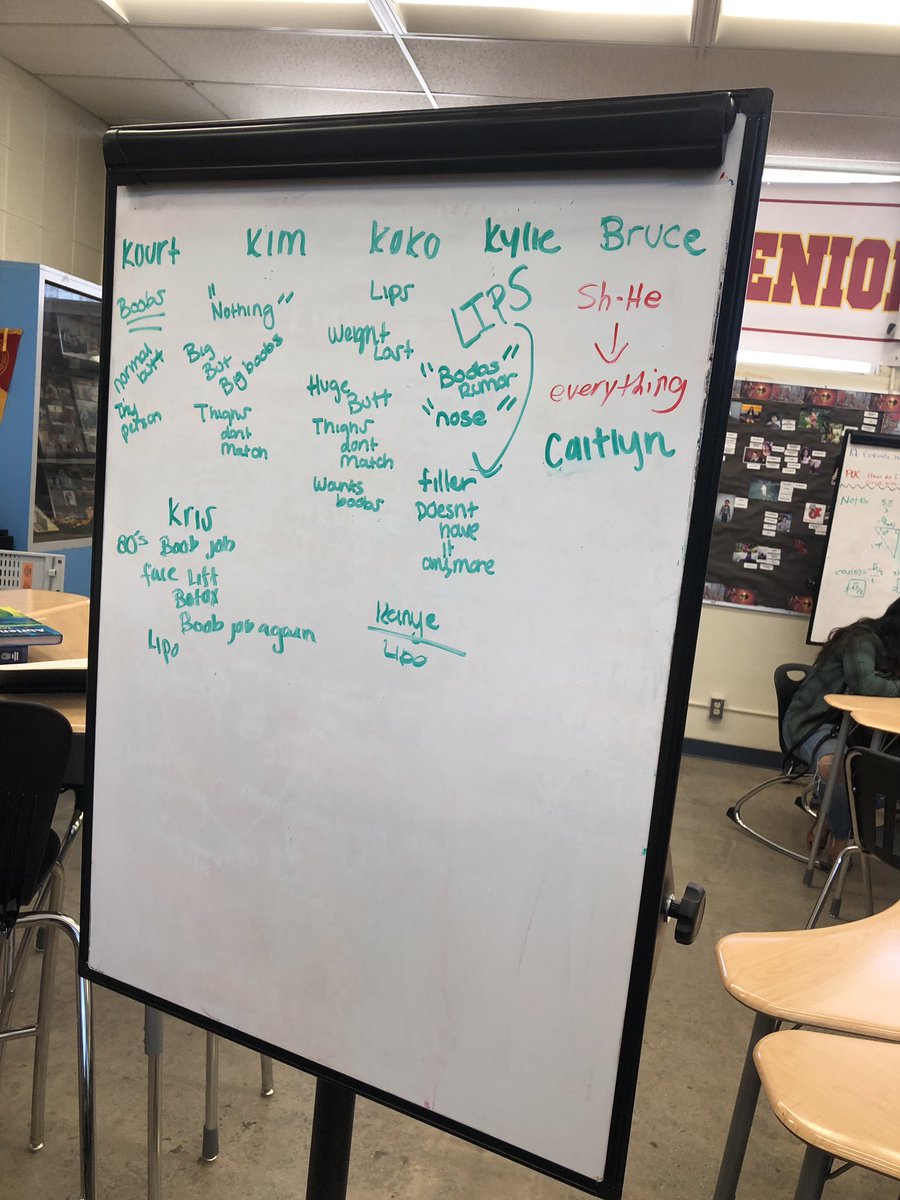 Kourt
Boobs
normal
butt
Tiny
person
Kim
"Nothing"
Big
But
Big boobs
Thighs
dont
match
Koko
Lips
Weight
Lost
Huge
Butt
Thighs
dont
match
Wants
boobs
Kylie
LIPS
"Boobs"
Rumor
"nose"
filler
Doesnt
have
it
anymore
Bruce
Sh-He
everything
Caitlyn
Kris
80's Boob job
face Lift
Botox
Boob job again
Lipo
Kanye
Lipo
ENIOR
Notes